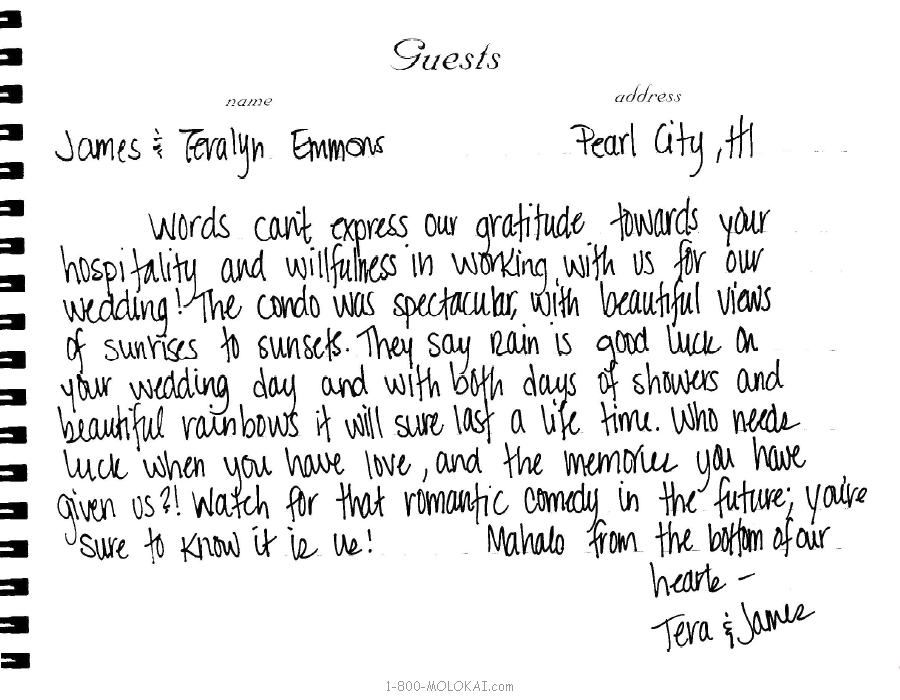 Guests
name address
James & Teralyn Emmons Pearl City, HI
Words can't express our gratitude towards your
hospitality and willfulness in working with us for our
wedding! The condo was spectacular, with beautiful views
of sunrises to sunsets. They say rain is good luck on
your wedding day and with both days of showers and
beautiful rainbows it will sure last a life time. Who needs
luck when you have love, and the memories you have
given us?! Watch for that romantic comedy in the future; you're
sure to know it is us! Mahalo from the bottom of our
hearts -
Tera & James
1-800-MOLOKAI.com